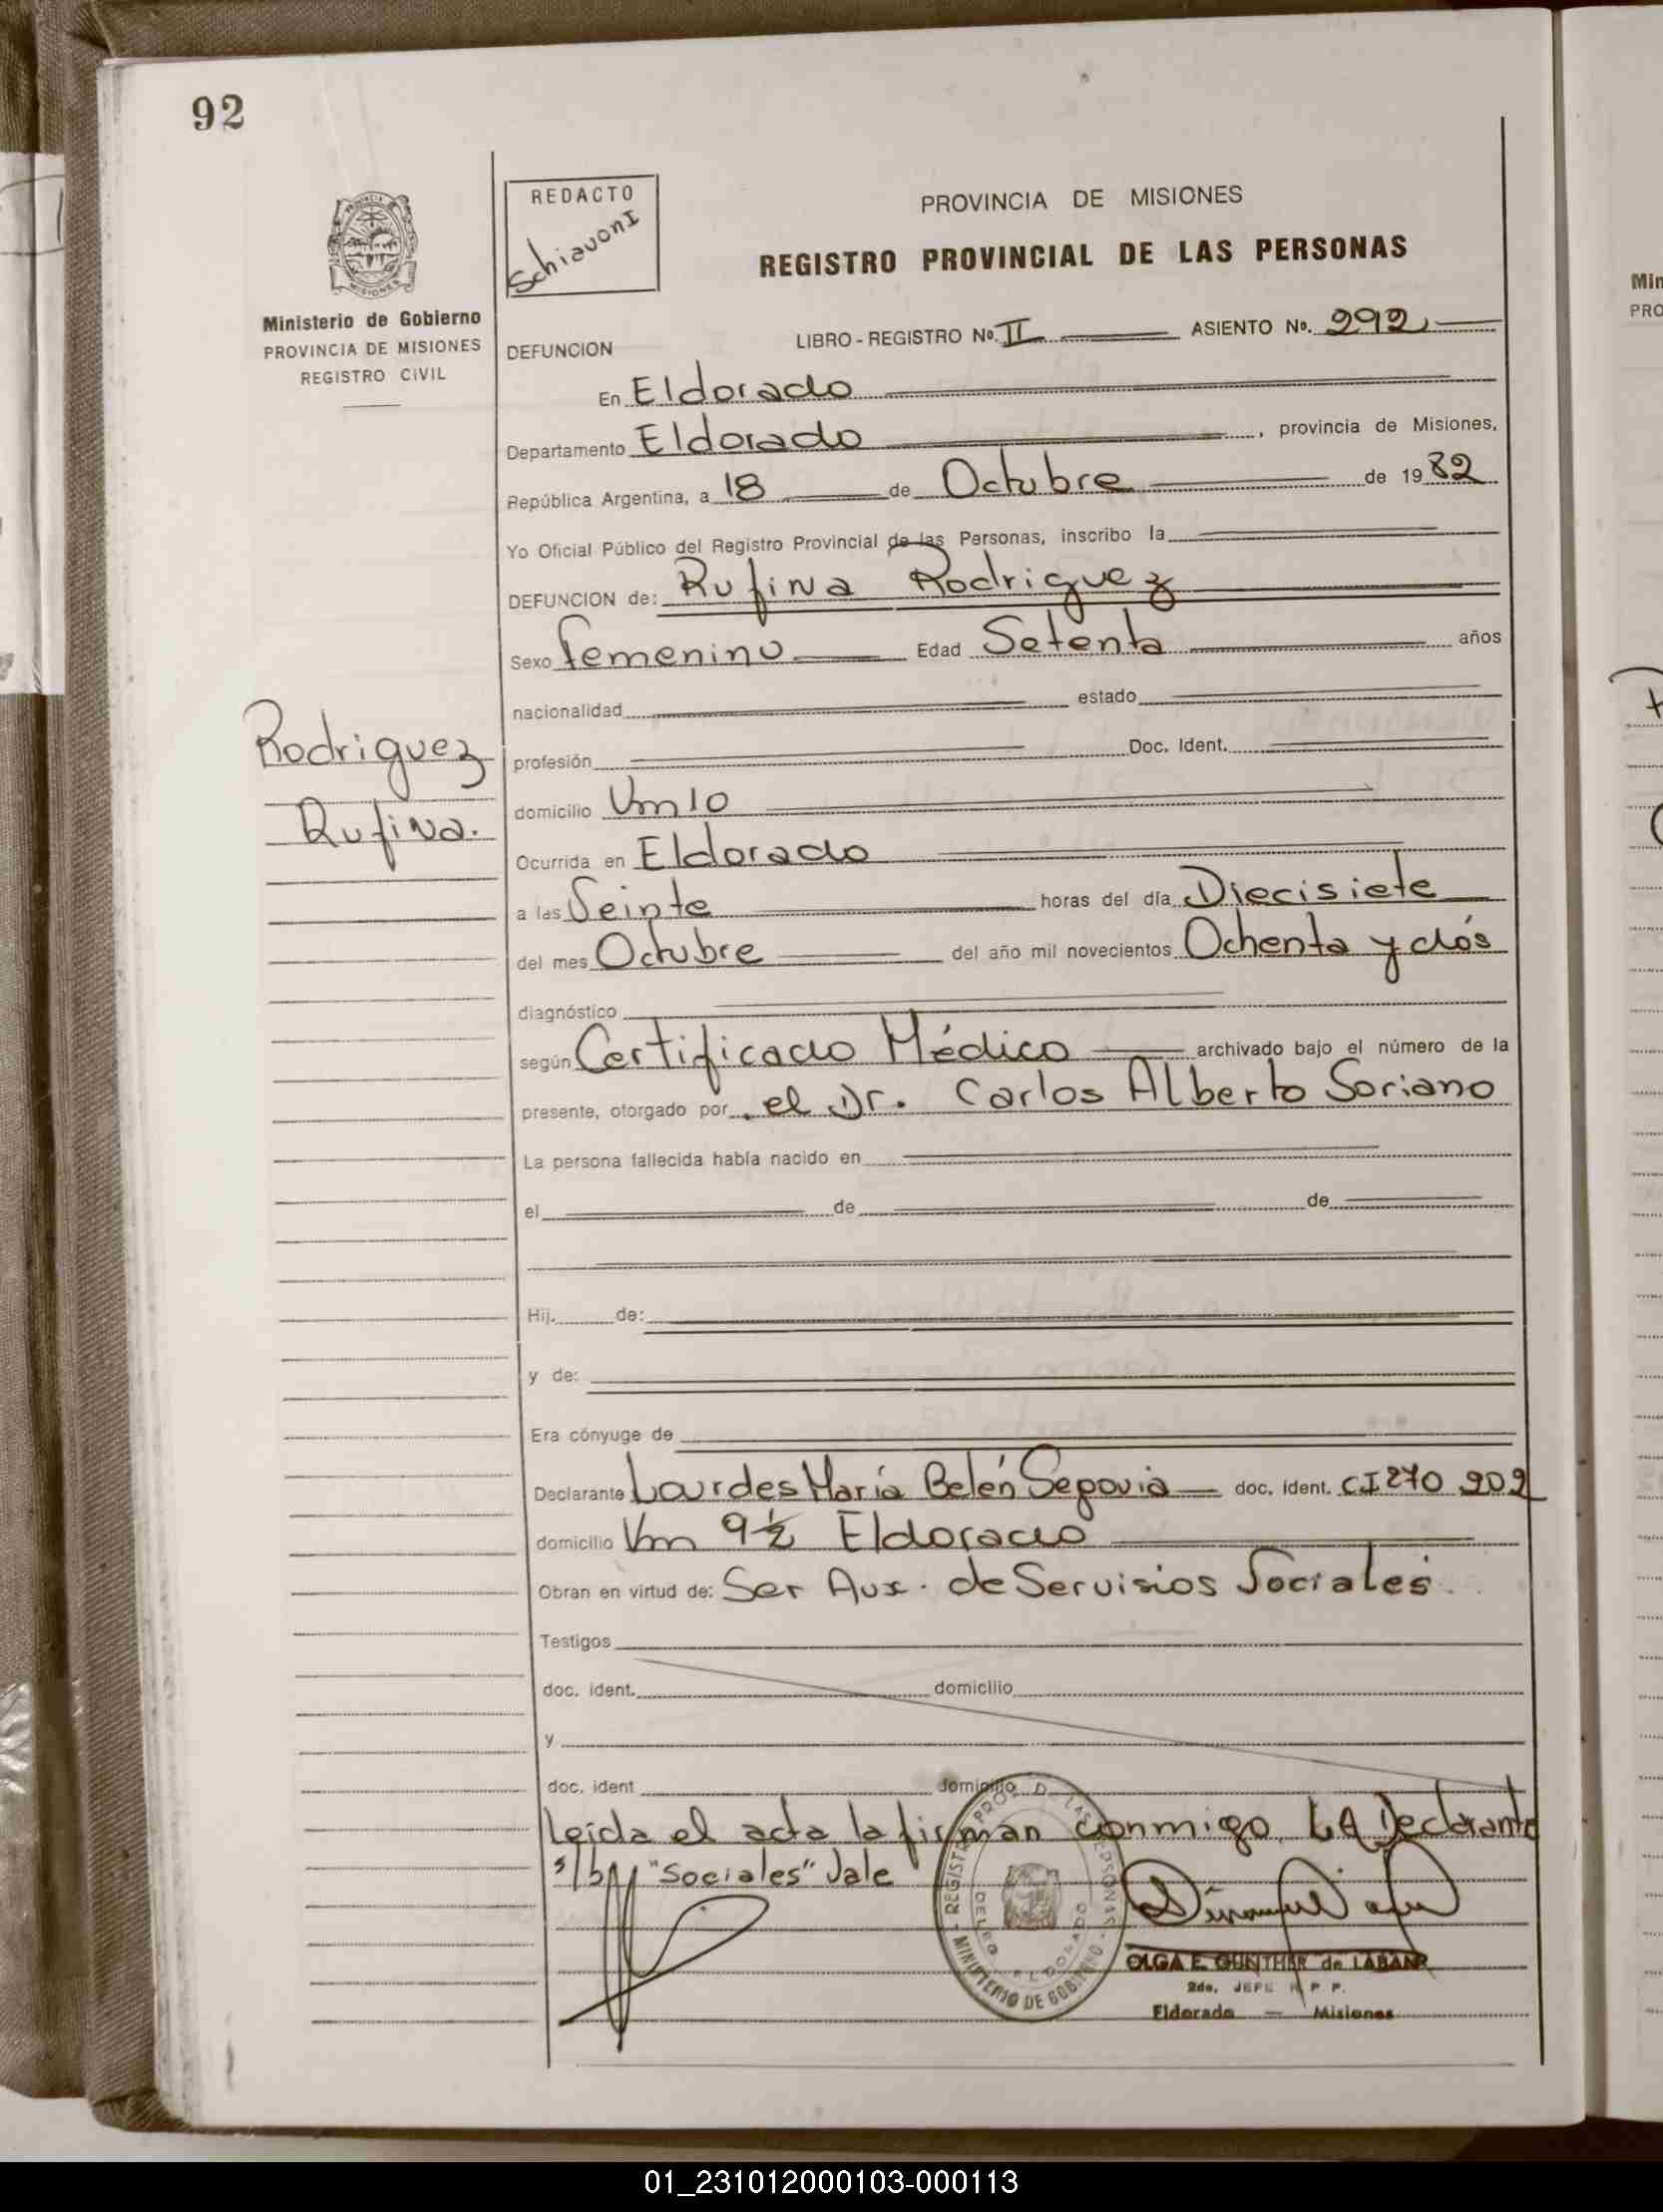 92
REDACTO
Schiavoni
PROVINCIA DE MISIONES
REGISTRO PROVINCIAL DE LAS PERSONAS
Ministerio de Gobierno
PROVINCIA DE MISIONES
REGISTRO CIVIL
DEFUNCION
LIBRO - REGISTRO No. II ASIENTO No. 292
En Eldorado
Departamento Eldorado, provincia de Misiones,
República Argentina, a 18 de Octubre de 1982
Yo Oficial Público del Registro Provincial de las Personas, inscribo la
DEFUNCION de: Rufina Rodriguez
Sexo femenino Edad Setenta años
nacionalidad estado
Rodriguez
Rufina.
profesión Doc. Ident.
domicilio Km 10
Ocurrida en Eldorado
a las Veinte horas del día Diecisiete
del mes Octubre del año mil novecientos Ochenta y dós
diagnóstico
según Certificado Médico archivado bajo el número de la
presente, otorgado por el Dr. Carlos Alberto Soriano
La persona fallecida había nacido en
el de de
Hij. de:
y de:
Era cónyuge de
Declarante Lourdes María Belén Segovia doc. ident. CI 270 902
domicilio Km 9½ Eldorado
Obran en virtud de: Ser Aux. de Servisios Sociales
Testigos
doc. ident. domicilio
y
doc. ident domicilio
Leida el acta la firman conmigo LA Declarante
s/b "Sociales" Vale
REGISTRO PROV. DE LAS PERSONAS
MINISTERIO DE GOBIERNO
ELDORADO
OLGA E. GUNTHER de LABAN
2do. JEFE R P P.
Eldorado — Misiones
Min
PRO
01_231012000103-000113